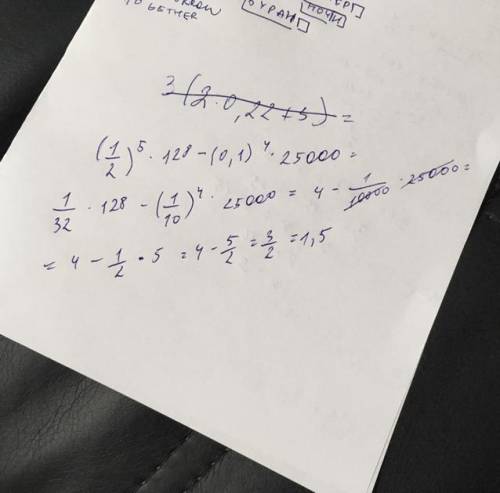 TOGETHER
3(2·0,22+5)=
(1/2)^5 · 128 - (0,1)^4 · 25000 =
1/32 · 128 - (1/10)^4 · 25000 = 4 - 1/10000 · 25000 =
= 4 - 1/2 · 5 = 4 - 5/2 = 3/2 = 1,5